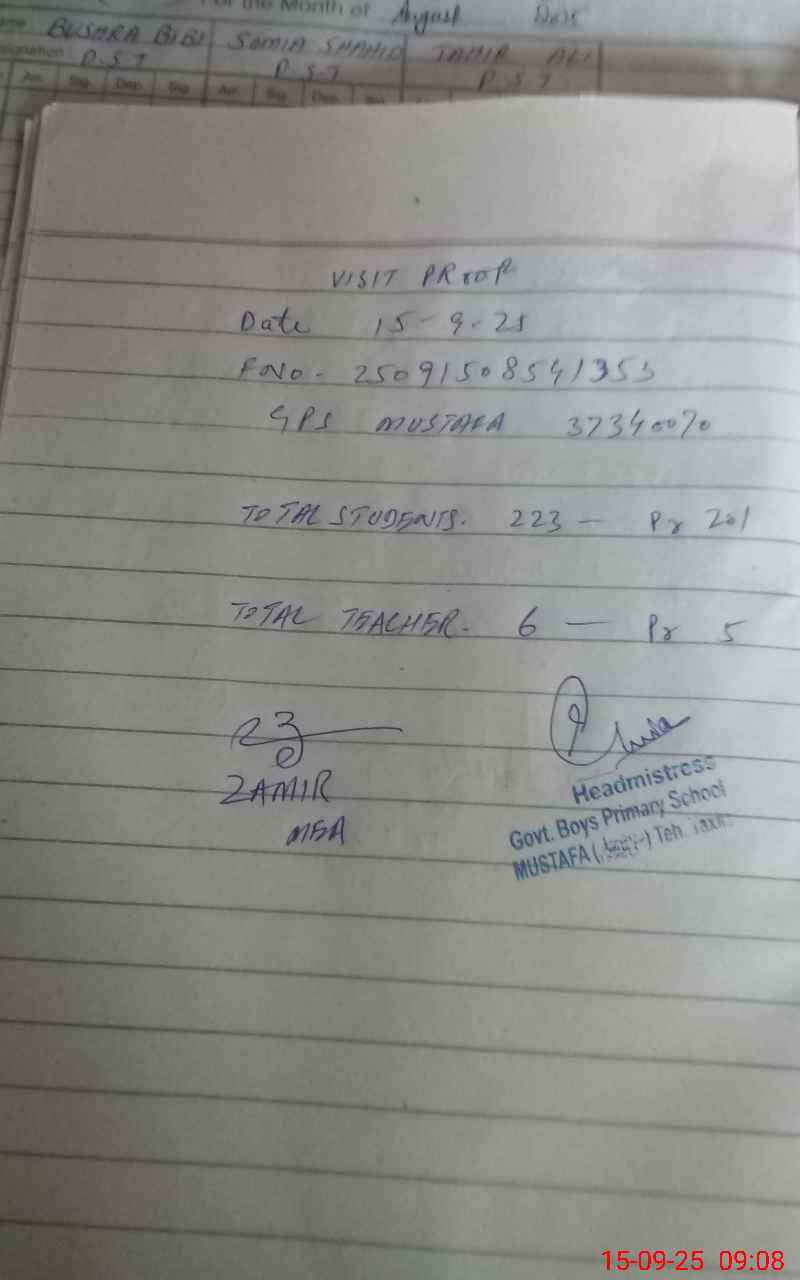 For the Month of August 2025
BUSHRA BIBI SOMIA SHAHID TAHIR ALI
P.S.T P.S.T P.S.T
Arr. Sig. Dep. Sig. Arr. Sig. Dep.
VISIT PROOF
Date 15-9-25
F.No. 25091508541353
GPS MUSTAFA 37340070
TOTAL STUDENTS. 223 — Pr 201
TOTAL TEACHER. 6 — Pr 5
ZAMIR
MEA
Headmistress
Govt. Boys Primary School
MUSTAFA ( ) Teh.
15-09-25 09:08